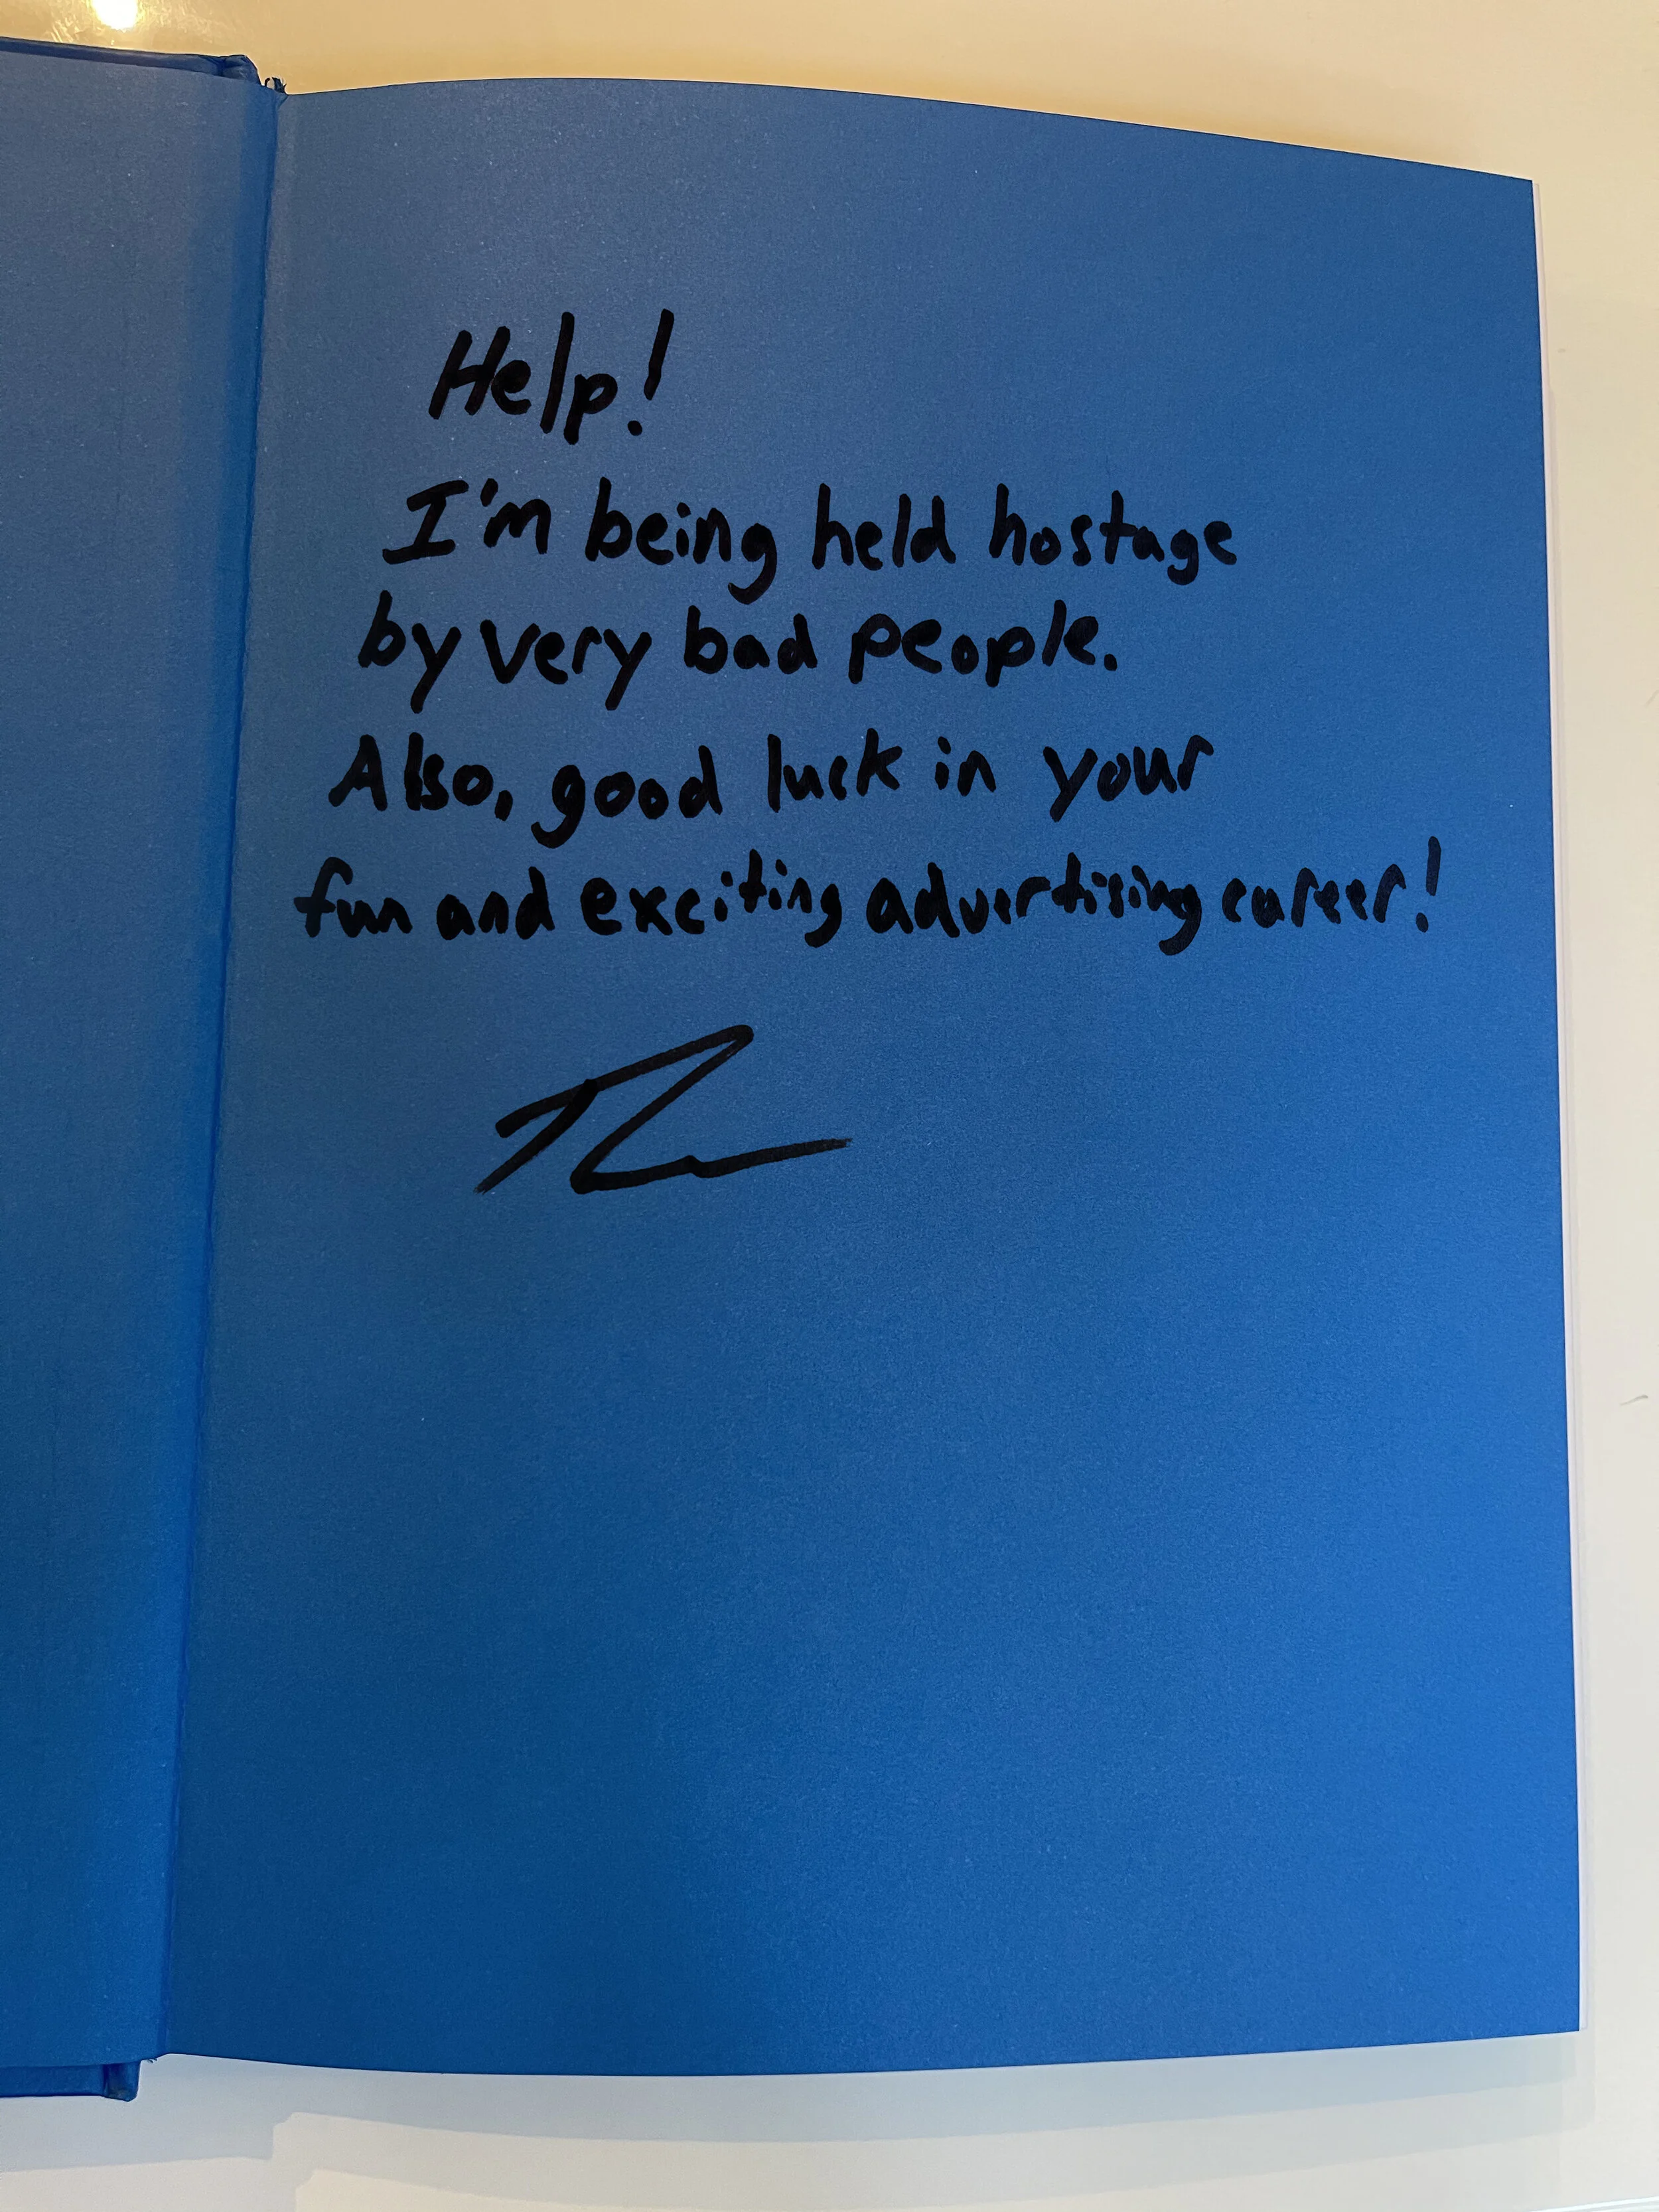 Help!
I'm being held hostage
by very bad people.
Also, good luck in your
fun and exciting advertising career!